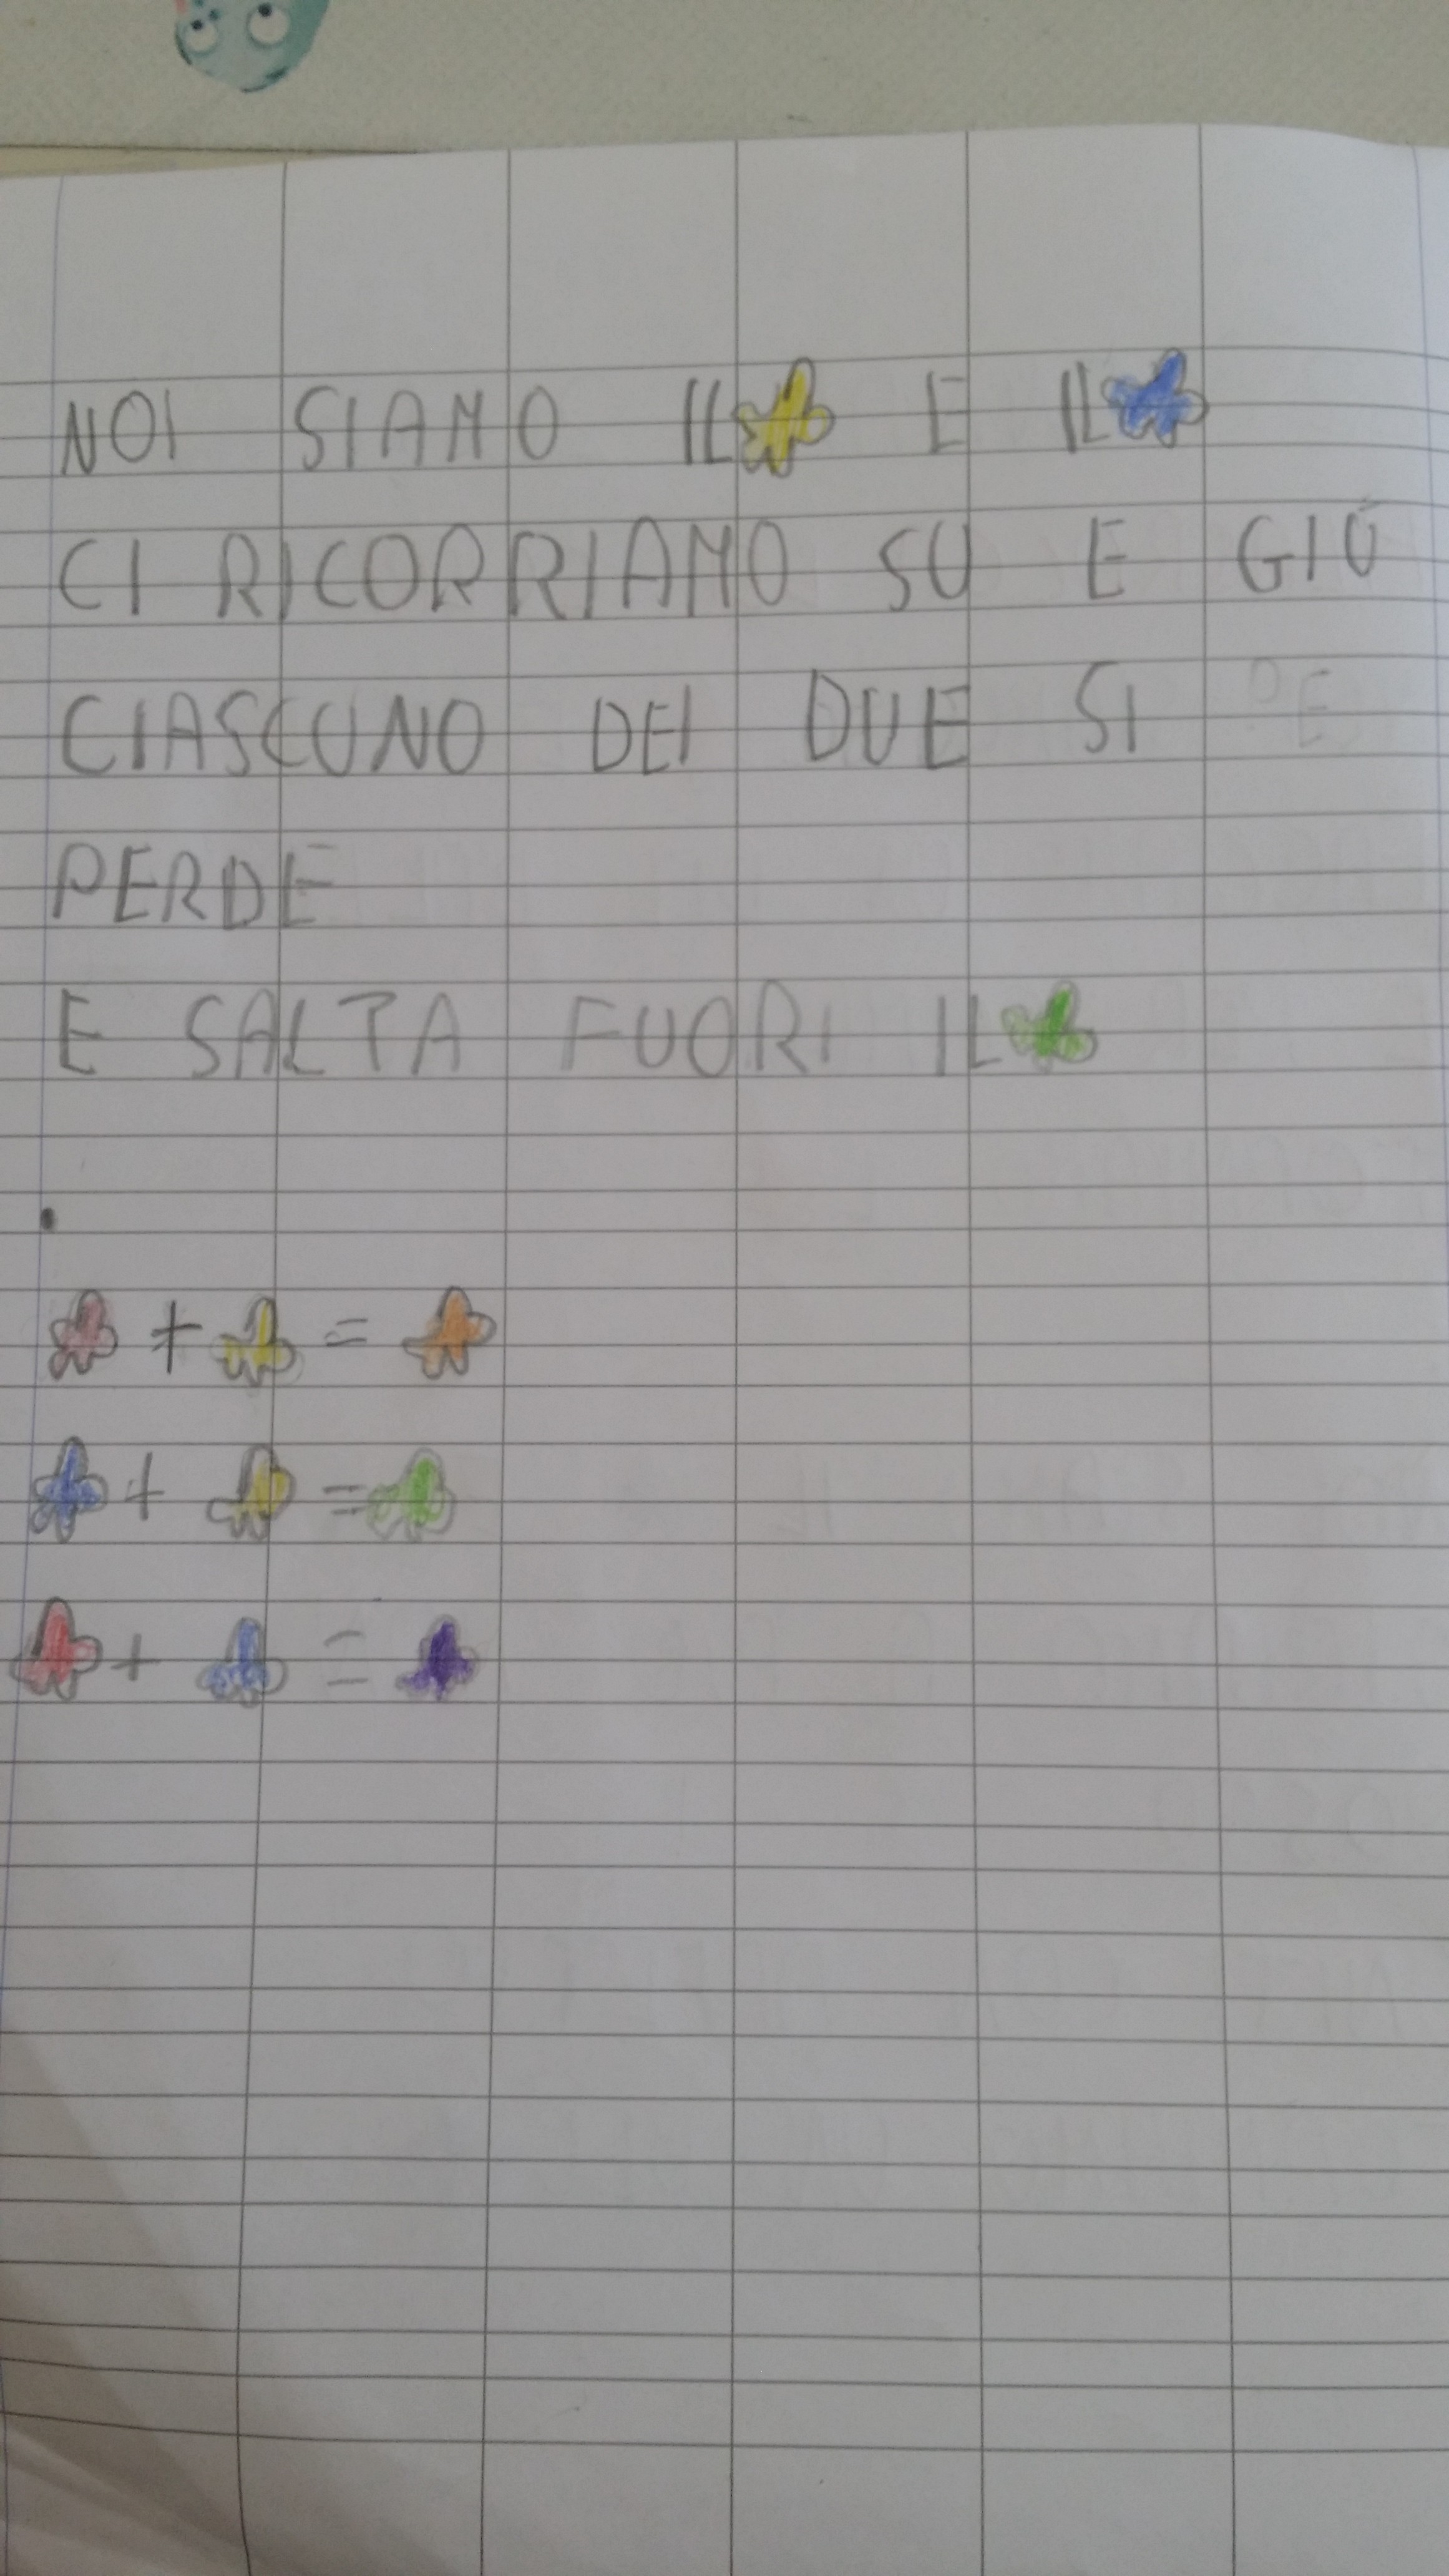 NOI SIAMO IL E IL
CI RICORRIAMO SU E GIÙ
CIASCUNO DEI DUE SI PE
PERDE
E SALTA FUORI IL
+ =
+ =
+ =